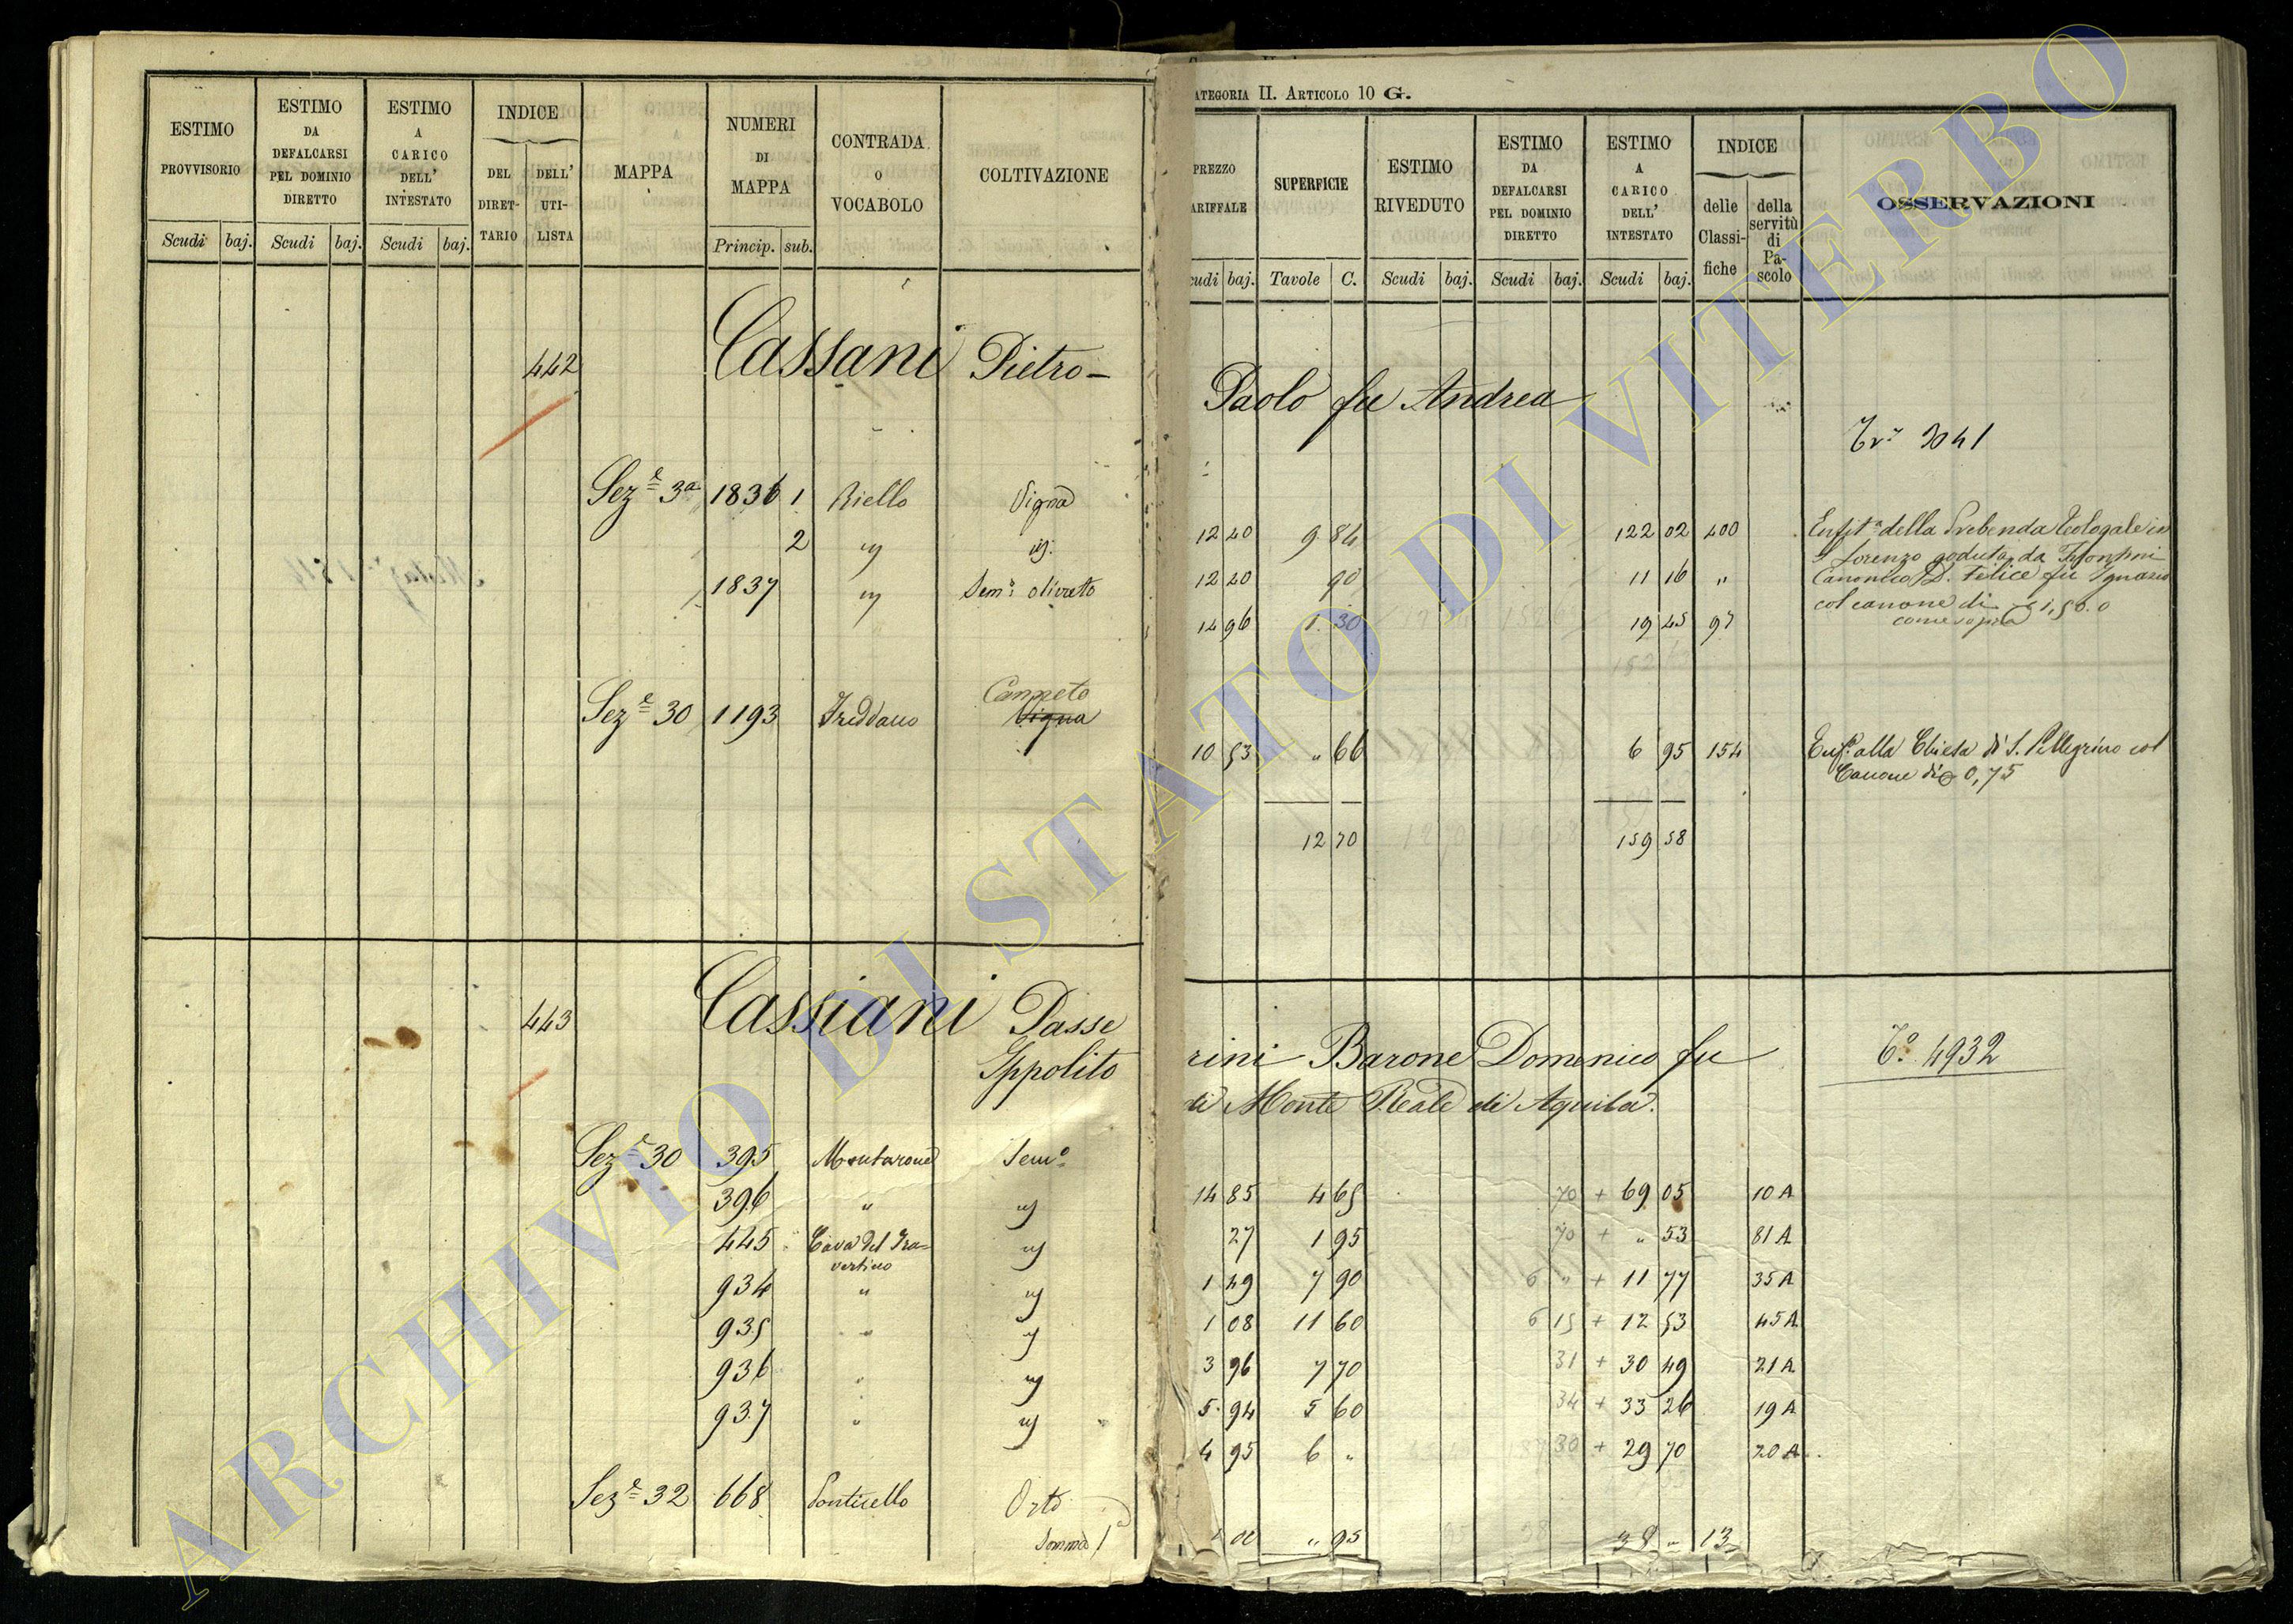 ESTIMO PROVVISORIO
ESTIMO DA DEFALCARSI PEL DOMINIO DIRETTO
ESTIMO A CARICO DELL' INTESTATO
INDICE
DEL DIRET-TARIO
DELL' UTI-LISTA
MAPPA
NUMERI DI MAPPA
CONTRADA O VOCABOLO
COLTIVAZIONE
Scudi baj. Scudi baj. Scudi baj. Princip. sub.
442 Cassani Pietro-
Sez.e 3a 1836 1 Riello Vigna
2 " id.
1837 " Sem.o olivato
Sez.e 30 1193 Freddano Canneto
Vigna
443 Cassiani Passe
Ippolito
Sez.e 30 395 Montarone Sem.o
396 " id
445 Cava del Tra-
vertino id
934 " id
935 " id
936 " id
937 " id
Sez.e 32 668 Ponticello Orto
Somma
ATEGORIA II. ARTICOLO 10 G.
PREZZO
ARIFFALE
SUPERFICIE
ESTIMO RIVEDUTO
ESTIMO DA DEFALCARSI PEL DOMINIO DIRETTO
ESTIMO A CARICO DELL' INTESTATO
INDICE
delle Classi-fiche
della servitù di Pa-scolo
OSSERVAZIONI
cudi baj. Tavole C. Scudi baj. Scudi baj. Scudi baj.
Paolo fu Andrea
3041
12 20 9 84 122 02 400 Enfit.a della Prebenda Teologale in
S Lorenzo goduta da
12 20 90 11 16 " Canonico D. Felice fu Ignazio
col canone di 1,50.0
14 96 1 30 19 45 97 come sopra
10 53 " 66 6 95 154 Enf. alla Chiesa di S. Pellegrino col
Canone di 0,75
12 70 159 58
rini Barone Domenico fu
T.o 4932
di Monte Reale di Aquila.
14 85 4 65 70 + 69 05 10 A
27 1 95 70 + " 53 81 A
1 49 7 90 6 " + 11 77 35 A
1 08 11 60 6 15 + 12 53 45 A
3 96 7 70 31 + 30 49 21 A
5 94 5 60 34 + 33 26 19 A
4 95 6 " 30 + 29 70 20 A
00 " 95 38 " 13
ARCHIVIO DI STATO DI VITERBO